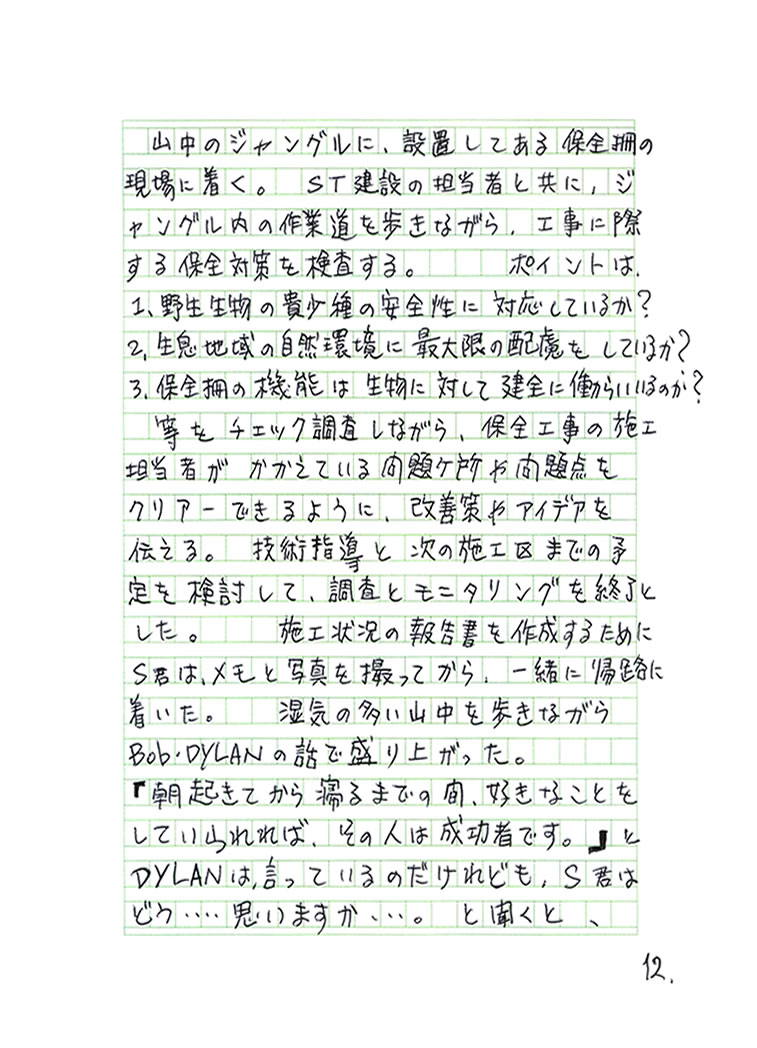 山中のジャングルに、設置してある保全柵の
現場に着く。　ST建設の担当者と共に、ジ
ャングル内の作業道を歩きながら、工事に際
する保全対策を検査する。　　ポイントは、
1、野生生物の貴少種の安全性に対応しているか？
2、生息地域の自然環境に最大限の配慮をしているか？
3、保全柵の機能は生物に対して建全に働らいているのか？
等をチェック調査しながら、保全工事の施工
担当者がかかえている問題ケ所や問題点を
クリアーできるように、改善策やアイデアを
伝える。　技術指導と次の施工区までの予
定を検討して、調査とモニタリングを終了と
した。　　施工状況の報告書を作成するために
S君は、メモと写真を撮ってから、一緒に帰路に
着いた。　　湿気の多い山中を歩きながら
Bob・DYLANの話で盛り上がった。
『朝起きてから寝るまでの間、好きなことを
していられれば、その人は成功者です。』と
DYLANは、言っているのだけれども、S君は
どう‥‥思いますか‥‥。　と聞くと、
12.